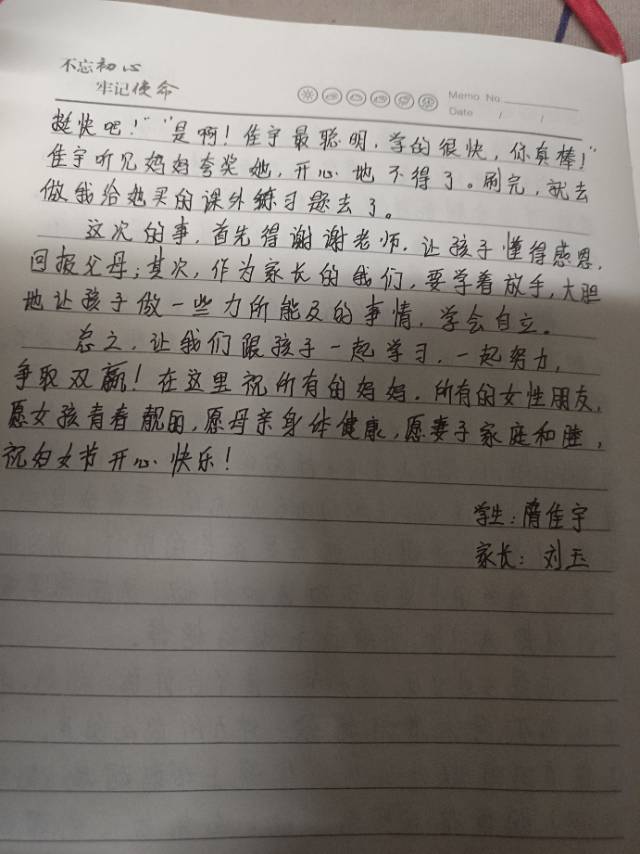 不忘初心
牢记使命
Memo No.
Date / /
挺快吧！”“是啊！佳宇最聪明，学的很快，你真棒！”
佳宇听见妈妈夸奖她，开心地不得了。刷完，就去
做我给她买的课外练习题去了。
这次的事，首先得谢谢老师，让孩子懂得感恩，
回报父母；其次，作为家长的我们，要学着放手，大胆
地让孩子做一些力所能及的事情，学会自立。
总之，让我们跟孩子一起学习，一起努力，
争取双赢！在这里祝所有的妈妈，所有的女性朋友，
愿女孩青春靓丽，愿母亲身体健康，愿妻子家庭和睦，
祝妇女节开心快乐！
学生：隋佳宇
家长：刘玉